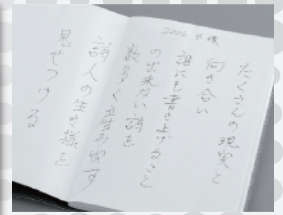 2006 年 春
たくさんの現実と
向き合い
誰にも書き上げること
の出来ない詩を
数多く産み出す
詩人の生き様を
見せつける